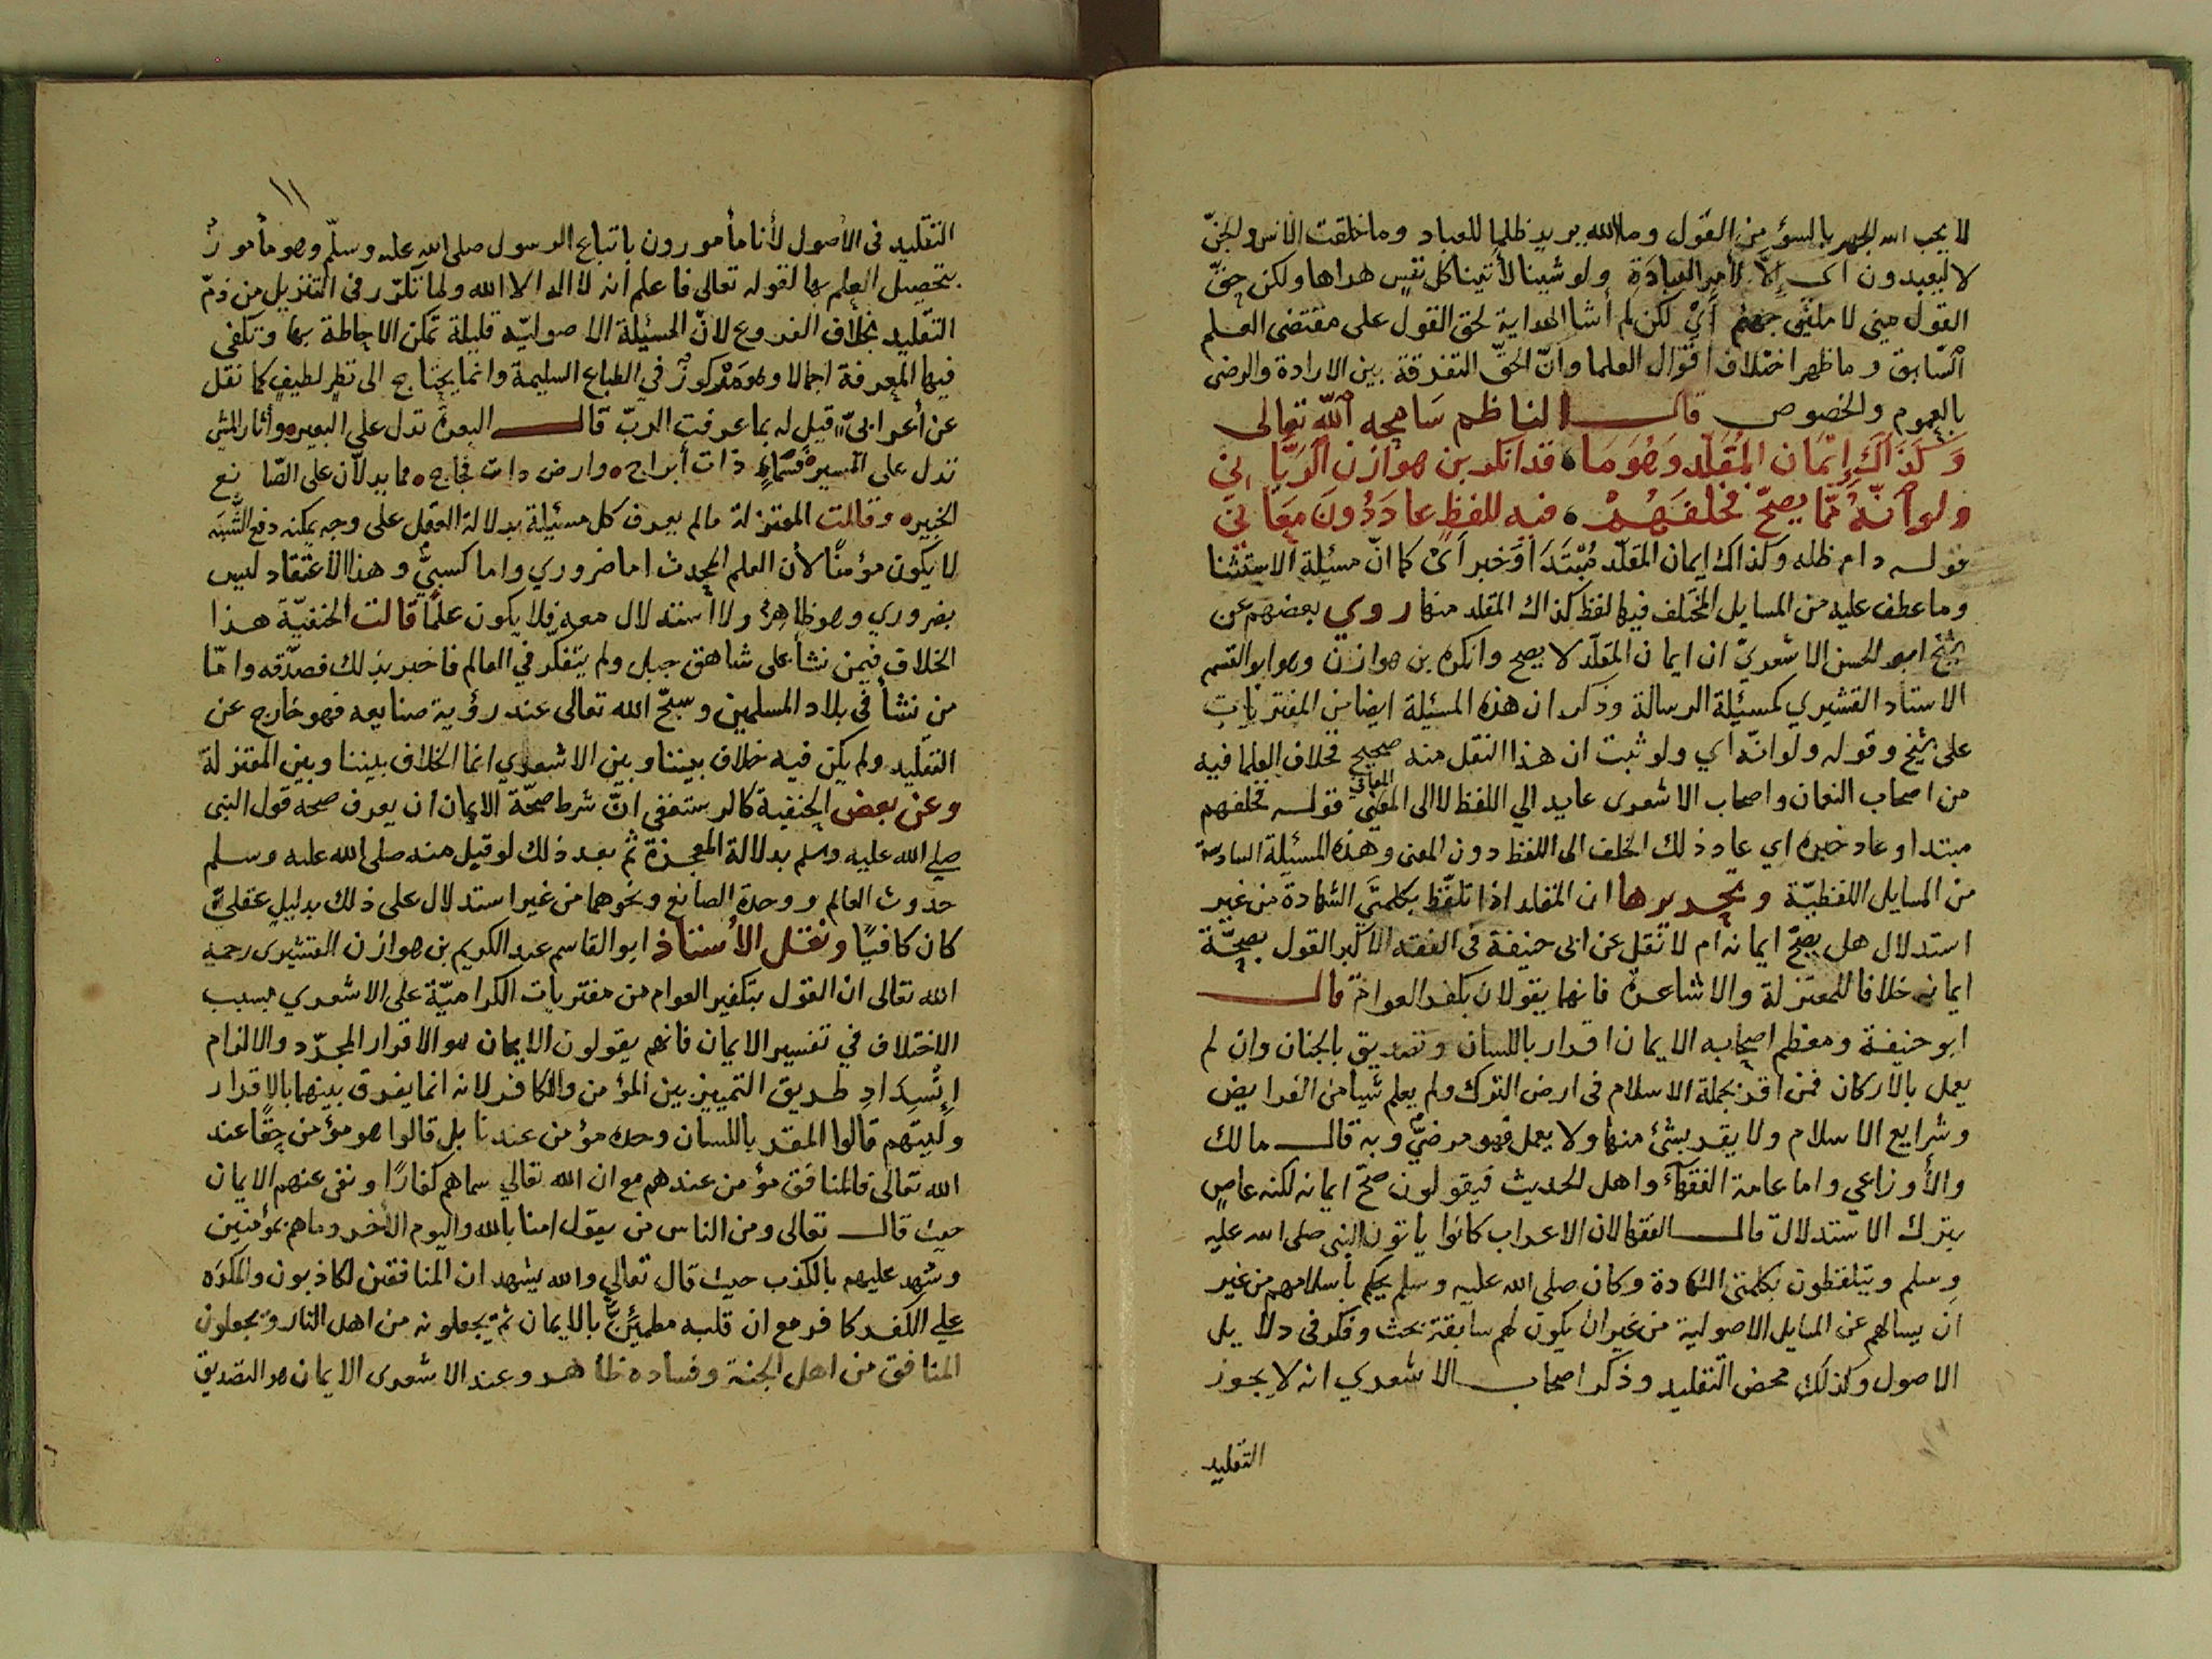 لا يحب الله الجهر بالسؤ من القول وما الله يريد ظلما للعباد وما خلقت الانس والجنّ
لا ليعبدون اى إلّا لأمر العبادة ولو شينا لأتينا كل نفس هداها ولكن حقّ
القول مني لا ملئنّ جهنم أيْ لكن لم أشا الهداية لحق القول على مقتضى العلم
السّابق وما ظهر اختلاف اقوال العلما وانّ الحقّ التفرقة بين الارادة والرضى
بالعموم والخصوص قال الناظم سَامحه الله تعالى
وَكَذَاكَ إِيمَان المُقَلّد وَهُوَ مَا قد انكر بن هوازن الرّبّاني
ولو أنّه ممّا يصحّ فخلفهُمْ فيه للفظٍ عا دَ دُونَ مَعَاني
قوله دام ظله وكذاك ايمان المقلّد مُبْتَدَا وَخبر أىْ كما انّ مسئلة الاستثنا
وما عطف عليه من المسايل المختلف فيها لفظ كذاك المقلد منها روي بعضهم عن
شيخ ابو الحسن الاشعريّ ان ايمان المقلّد لا يصح وانكره بن هوازن وهو ابو القسم
الاستاد القشيري كمسئلة الرسالة وذكر ان هذه المسئلة ايضا من المفتريات
على شيخ وقوله ولو انّه أي ولو ثبت ان هذا النقل منه صحيح فخلاف العلما فيه
من اصحاب النعمان واصحاب الاشعرى عايد الي اللفظ لا الى المعنى المعاني قوله فخلفهم
مبتدا وعاد خبره اي عاد ذلك الخلف الى اللفظ دون المعنى وهذه المسئلة السادسة
من المسايل اللفظيّة وتحريرها ان المقلد اذا تلفّظ بكلمتَي الشهادة من غير
استدلال هل يصحّ ايمانه ام لا نقل عن ابى حنيفة فى الفقه الاكبر القول بصحّة
ايمانه خلافا للمعتزلة والاشاعرة فانهما يقولان بكفر العوام قال
ابو حنيفة ومعظم اصحابه الايمان اقرار باللسان وتصديق بالجنان وان لم
يعمل بالاركان فمن اقر بجملة الاسلام فى ارض الترك ولم يعلم شيا من الفرايض
وشرايع الاسلام ولا يقر بشئ منها ولا يعمل فهو مرضيٌّ وبه قال مالك
والأوزاعي واما عامة الفقهاء واهل الحديث فيقولون صحّ ايمانه لكنه عاصٍ
بترك الاستدلال قال الفقها لان الاعراب كانوا ياتون النبى صلى الله عليه
وسلم ويتلفظون بكلمتى الشهادة وكان صلى الله عليه وسلم يحكم بأسلامهم من غير
ان يسالهم عن المسايل الاصولية من غير ان يكون لهم سابقة بحث وفكر فى دلايل
الاصول وكذلك محض التقليد وذكر اصحاب الاشعري انه لا يجوز
التقليد
١١
التقليد فى الأصول لأنا مأمورون باتباع الرسول صلى الله عليه وسلّم وهو مأمورٌ
بتحصيل العلم بها لقوله تعالى فاعلم أنه لا اله الا الله ولما تكرّر فى التنزيل من ذمّ
التّقليد بخلاف الفروع لانّ المسئلة الاصوليّه قليلة تمكن الاحاطة بها وتكفى
فيها المعرفة اجمالا وهو مَرْكوزٌ في الطباع السليمة وانما يحتاج الى نظرٍ لطيفٍ كما نقل
عن أعرابىّ قيل له بما عرفت الربّ قال البعرة تدل علي البعير وأثار المشى
تدل على المسير فسماءٍ ذات أبراج وارض دات فجاج مما يدلاّن على الصّانع
الخبير وقالت المعتزلة مالم يعرف كل مسئيلة بدلالة العقل على وجه يمكنه دفع الشّبَه
لا يكون مؤمنًا لأن العلم المحدث اما ضروري واما كسبيٌّ وهذا الاعتقاد ليس
بضروري وهو ظاهرٌ ولا استدلال معه فلا يكون علمًا قالت الحنفيّة هذا
الخلاف فيمن نشأ على شاهق جبل ولم يتفكّر في العالم فاخبر بذلك فصدّقه وامّا
من نشأ فى بلاد المسلمين وسبّح الله تعالى عند رؤية صنايعه فهو خارج عن
التقليد ولم يكن فيه خلاف بيننا وبين الاشعري انما الخلاف بيننا وبين المعتزلة
وعن بعض الحنفية كالرستغفى انّ شرط صحّة الايمان ان يعرف صحه قول النبى
صلي الله عليه وسلم بدلالة المعجزة ثم بعد ذلك لو قيل منه صلى الله عليه وسلم
حدوث العالم ووحدة الصانع ونحوهما من غير استدلال على ذلك بدليل عقليّ
كان كافيًا ونقل الأستاذ ابو القاسم عبد الكريم بن هوازن القشيرى رحمه
الله تعالى ان القول بتكفير العوام من مفتريات الكراميّة على الاشعري بسبب
الاختلاف في تفسير الايمان فانهم يقولون الايمان هو الاقرار المجرّد والالزام
انْسِدَادِ طريق التمييز بين المؤمن والكافر لانه انما يفرق بينهما بالاقرار
ولَيتهم قالوا المقر باللسان وحده مؤمن عندنا بل قالوا هو مؤمن حقًا عند
الله تعالى فالمنافق مؤمن عندهم مع ان الله تعالي سماهم كفارًا ونفى عنهم الايمان
حيث قال تعالى ومن الناس من يقول امنا بالله واليوم الأخر وما هم بمؤمنين
وشهد عليهم بالكذب حيث قال تعالي والله يشهد ان المنافقين لكاذبون والمكرَه
علي الكفر كافر مع ان قلبه مطمئنٌّ بالايمان ثم يجعلونه من اهل النار ويجعلون
المنافق من اهل الجنة وفساده ظاهر وعند الاشعرى الايمان هو التصديق